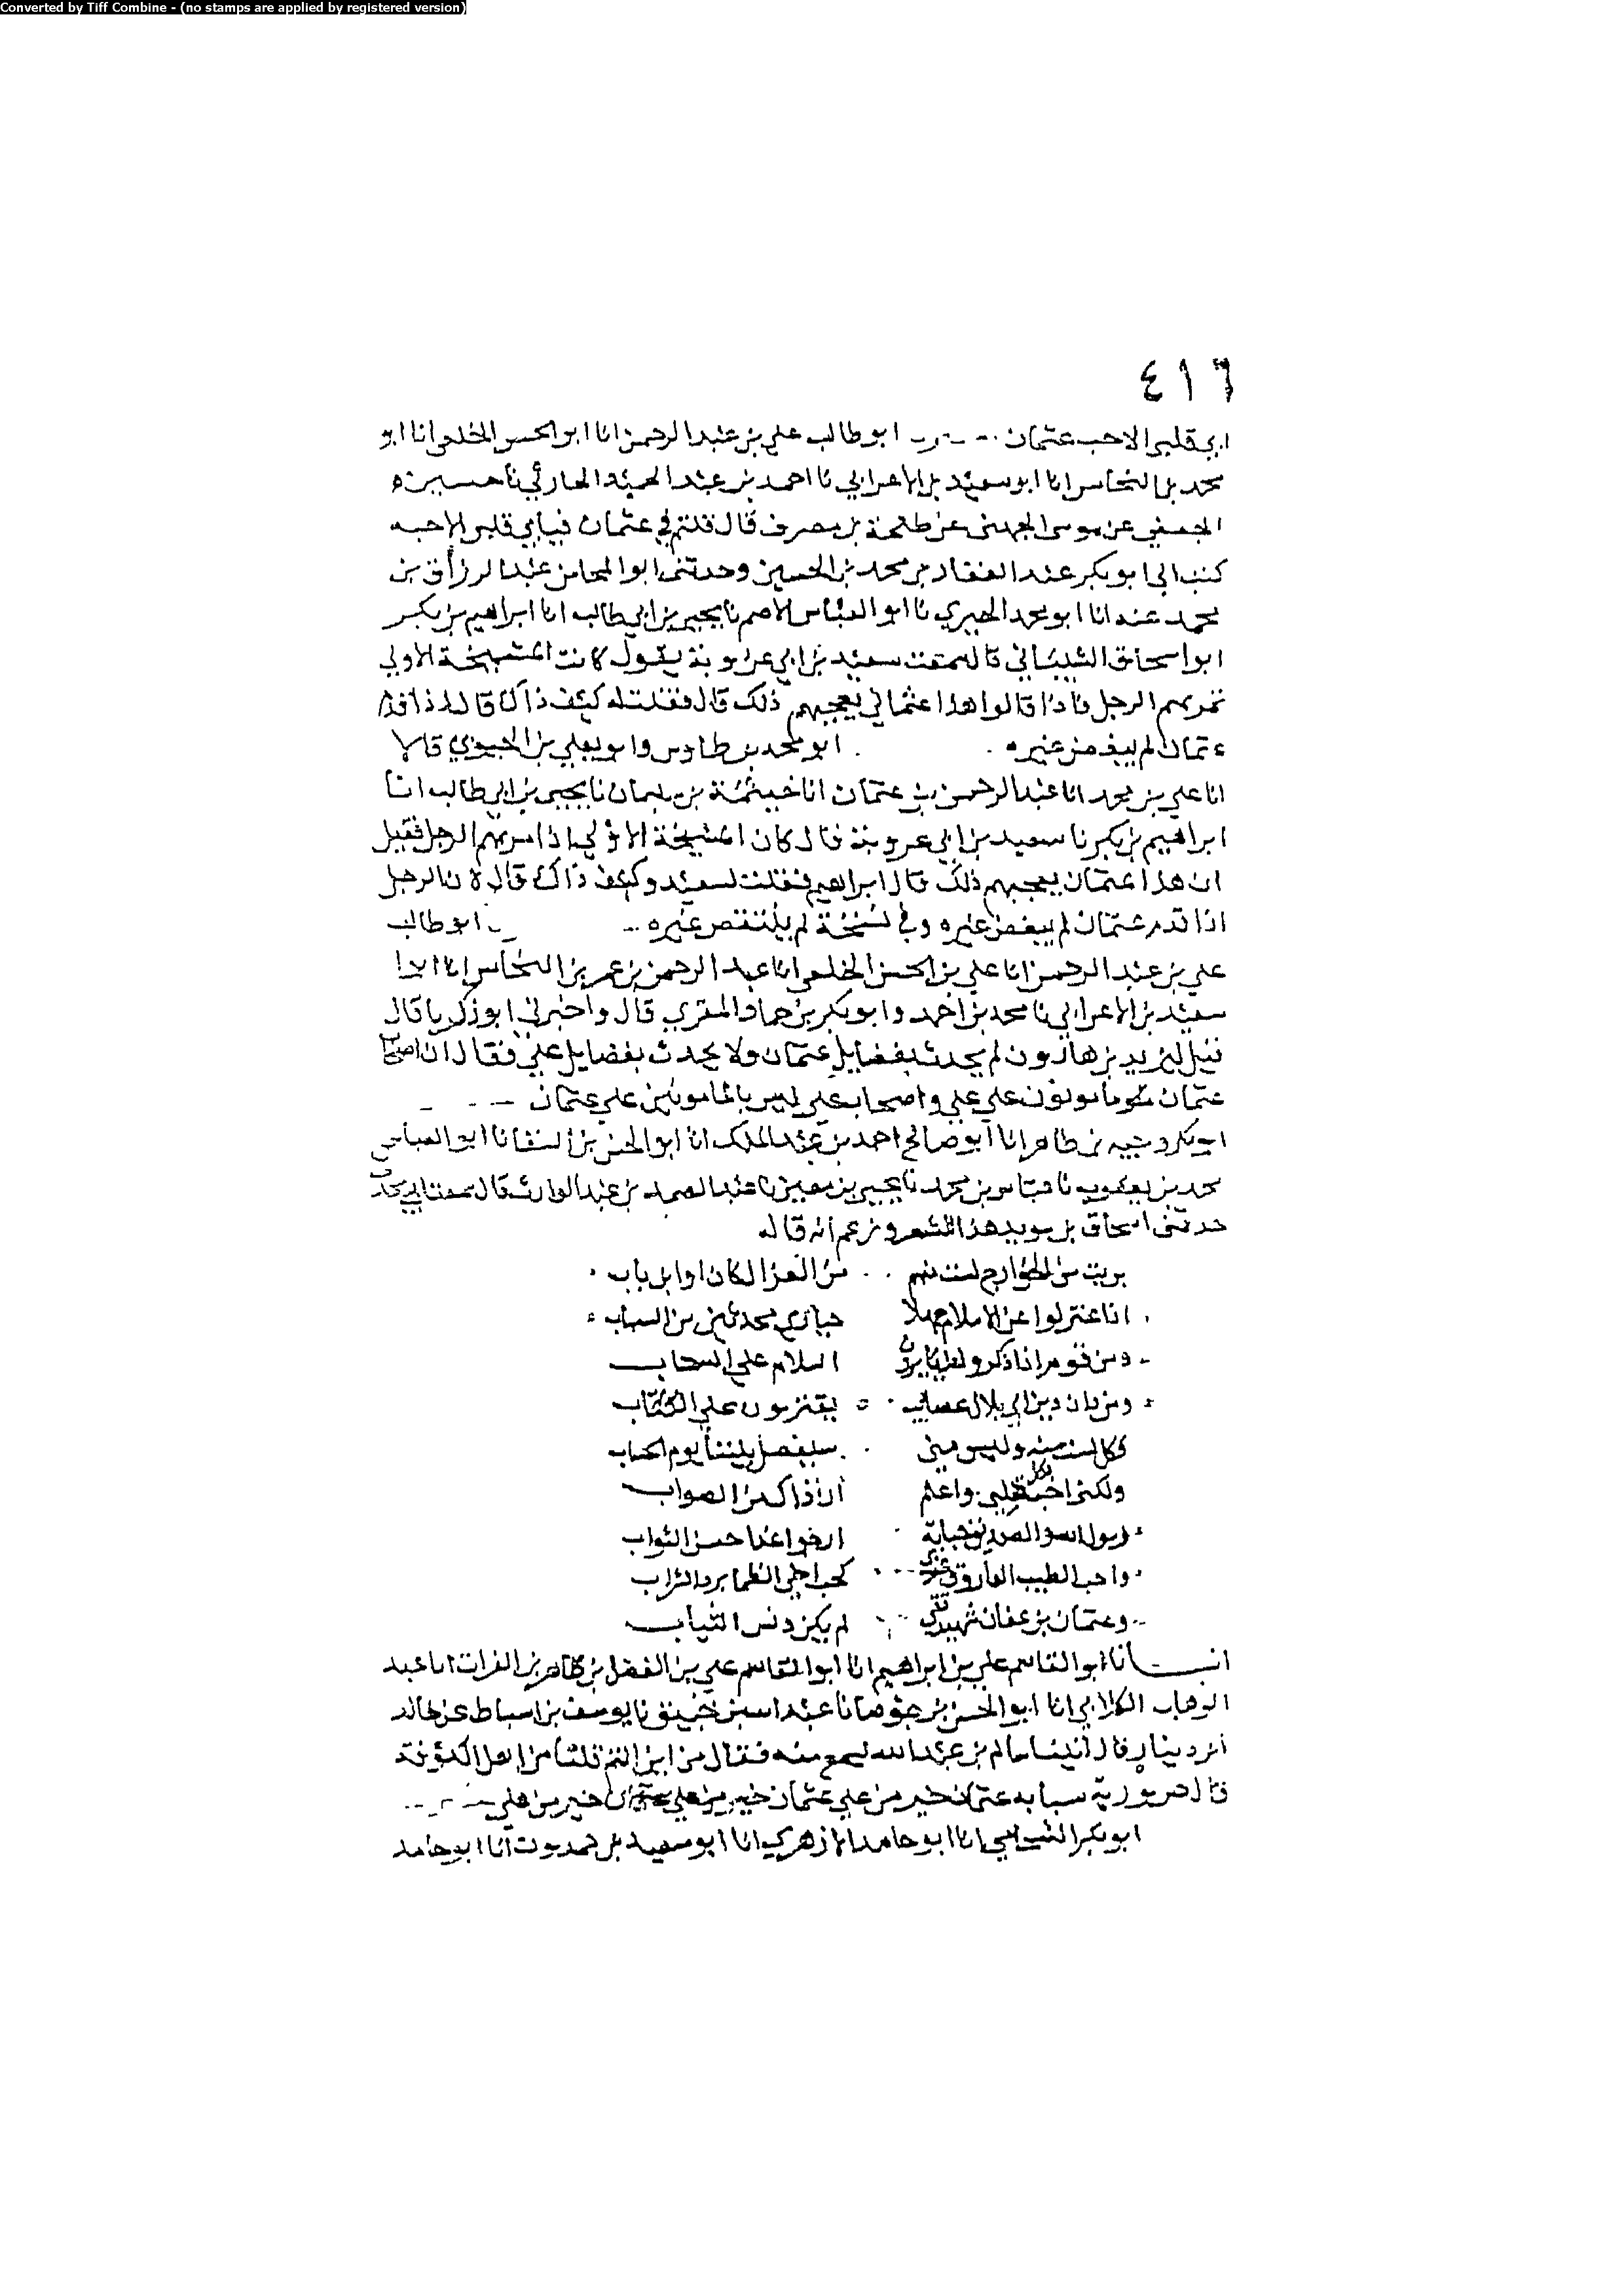 Converted by Tiff Combine - (no stamps are applied by registered version)
٤١٦
ابي قلبي الا حب عثمان ابو طالب علي بن عبد الرحمن انا ابو الحسن الخلعي انا ابو
محمد بن النحاس انا ابو سعيد بن الاعرابي نا احمد بن عبد الحميد الحارثي نا حسين
الجعفي عن موسى الجهني عن طلحة بن مصرف قال قلتم في عثمان فيابي قلبي الا حبه
كتب الي ابو بكر عبد الغفار بن محمد بن الحسين وحدثني ابو المحاسن عبد الرزاق بن
محمد عنه انا ابو محمد الحيري نا ابو العباس الاصم نا يحيى بن ابي طالب انا ابراهيم بن بكر
ابو اسحاق الشيباني قال سمعت سعيد بن ابي عروبة يقول كانت المشيخة الاولى
تمر بهم الرجل فاذا قالوا هذا عثماني يعجبهم ذلك قال فقلت له كيف ذاك قال اذا قدم
عثمان لم يبغض غيره ابو محمد بن طاوس وابو يعلى بن الحبوبي قالا
انا علي بن محمد انا عبد الرحمن بن عثمان انا خيثمة بن سليمان نا يحيى بن ابي طالب انا
ابراهيم بن بكر نا سعيد بن ابي عروبة قال كان المشيخة الاولى اذا مر بهم الرجل فقيل
ان هذا عثمان يعجبهم ذلك قال ابراهيم فقلت لسعيد وكيف ذاك قال لان الرجل
اذا قدم عثمان لم يبغض غيره وفي نسخة لم ينتقص غيره ابو طالب
علي بن عبد الرحمن انا علي بن الحسن الخلعي انا عبد الرحمن بن عمر بن النحاس انا
سعيد بن الاعرابي نا محمد بن احمد وابو بكر بن حماد المقري قال واخبرني ابو زكريا قال
قيل ليزيد بن هارون لم يحدث بفضايل عثمان ولا يحدث بفضايل علي فقال ان اصحاب
عثمان مامونون على علي واصحاب علي ليس بالمامونين على عثمان
وجيه بن طاهر انا ابو صالح احمد بن عبد الملك انا ابو الحسن بن السقا نا ابو العباس
محمد بن يعقوب نا عباس بن محمد نا يحيى بن معين نا عبد الصمد بن عبد الوارث قال سمعت ابي يحدث
حدثني اسحاق بن سويد هذا الشعر وزعم انه قاله
بريت من الخوارج لست منهم من الغزال كان او ابن باب
انا عتزلوا عن الاسلام جهلا حيازي محدثين من السباب
ومن قوم اذا ذكروا عليا يردون السلام على السحاب
ومن دان دين ابي بلال عصايب يفترون على الكتاب
فكل لست منه وليس مني سيفصل بيننا يوم الحساب
ولكني احب بكل قلبي واعلم ان ذاك من الصواب
رسول الله والصديق حبا به ارجو غدا حسن الثواب
واحب الطيب الفاروق عندي كحب اخي الظما برد الشراب
وعثمان بن عفان شهيد تقي لم يكن دنس الثياب
انبانا ابو القاسم علي بن ابراهيم انا ابو القاسم علي بن الفضل بن طاهر بن الفرات انا عبد
الوهاب الكلابي انا ابو الحسن بن جوصا نا عبد الله بن خبيق نا يوسف بن اسباط عن خالد
بن دينار قال اتينا سالم بن عبد الله نسمع منه فقال من اين انتم قلنا من اهل الكوفة
قال حرورية سبابه عثمان خير من علي عثمان خير من علي عثمان خير من علي
ابو بكر الشحامي انا ابو حامد الازهري انا ابو سعيد بن حمدون انا ابو حامد